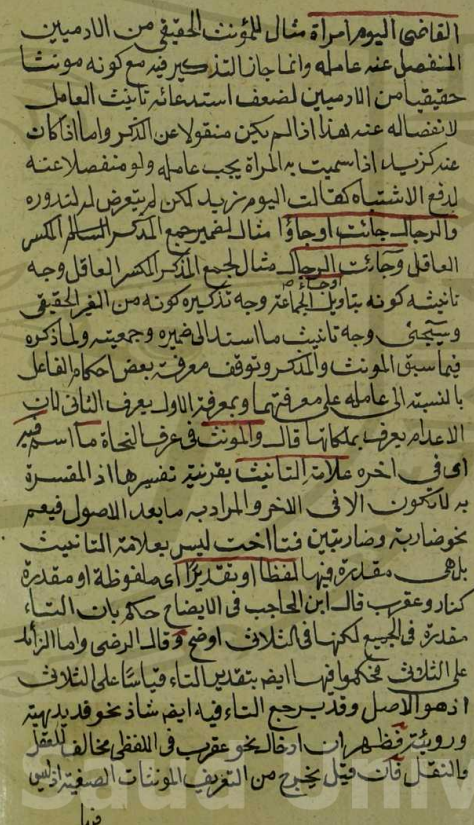 القاضى اليوم امراة مثال للمؤنث الحقيقى من الادميين
المنفصل عنه عامله وانما جاز التذكير فيه مع كونه مونثا
حقيقيا من الادميين لضعف استدعائه تانيث العامل
لانفصاله عنه هذا اذا لم يكن منقولا عن الذكر واما اذا كان
عنه كزيد اذا سميت به المراة يجب عامله ولو منفصلا عنه
لدفع الاشتباه كقالت اليوم زيد لكن لم يتعرض له لندوره
والرجال جائت اوجاؤا مثال لضمير جمع المذكر السالم المكسر
العاقل وجائت الرجال مثال لجمع المذكر المكسر العاقل وجه
اوجاء
تانيثه كونه بتاويل الجماعة وجه تذكيره كونه من الغير الحقيقى
وسيجئ وجه تانيث ما اسند الى ضميره وجمعيته ولما ذكره
فيما سبق المونث والمذكر وتوقف معرفة بعض احكام الفاعل
بالنسبة الى عامله على معرفتهما وبمعرفة الاول يعرف الثانى لان
الاعدام يعرف بملكاتها قال والمونث فى عرف النحاة ما اسم فيه
اى فى اخره علامة التانيث بقرينة تفسيرها اذ المفسرة
به لا تكون الا فى الاخر والمراد به ما بعد الاصول فيعم
نحو ضاربة وضاربتين فتا اخت ليس بعلامة التانيث
بل هى مقدرة فيها لفظا او تقديرا اى ملفوظة او مقدرة
كنار وعقرب قال ابن الحاجب فى الايضاح حكم بان التاء
مقدرة فى الجميع لكنها فى الثلاثى اوضح وقال الرضى واما الزائد
على الثلاثى فحكموا فيها ايضا بتقدير التاء قياسا على الثلاثى
اذ هو الاصل وقد يرجع التاء فيه ايضا شاذ نحو قديديمة
ووريئة فظهر ان ارقال نحو عقرب فى اللفظى مخالف للعقل
والنقل فان قيل يخرج من التعريف المونثات الصغية اذ ليس
فيها
Saud Univ